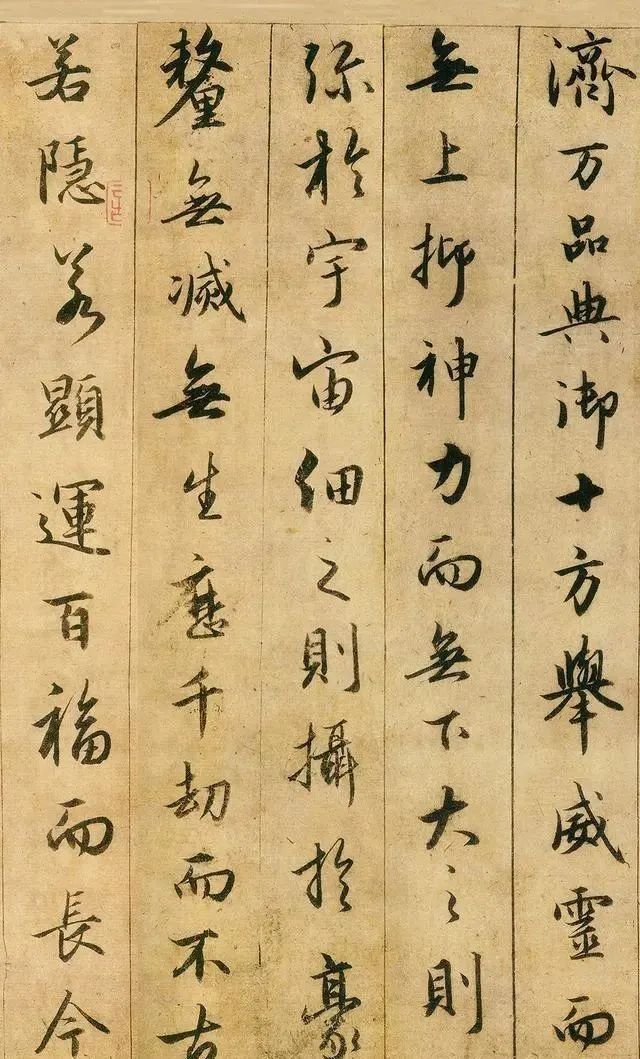 濟万品典御十方舉威靈而
無上抑神力而無下大之則
弥於宇宙細之則攝於豪
釐無滅無生歷千劫而不古
若隱若顯運百福而長今